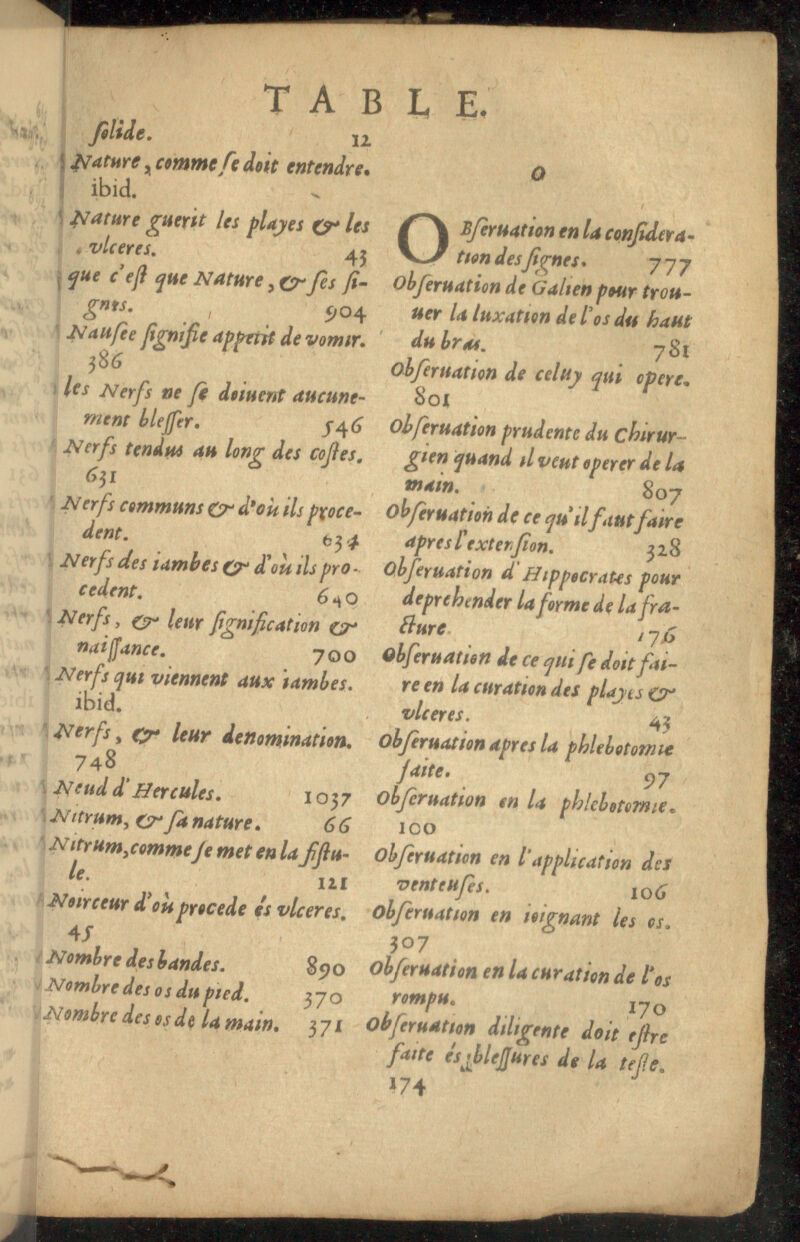 TABLE.
ſolide. 12
Nature, comme ſe doit entendre.
ibid.
Nature guerit les playes & les
vlceres. 43
que c'eſt que Nature, & ſes ſi-
gnes. 904
Nauſee ſignifie appetit de vomir.
386
les Nerfs ne ſe doiuent aucune-
ment bleſſer. 546
Nerfs tendus au long des coſtes.
631
Nerfs communs & d'où ils proce-
dent. 634
Nerfs des iambes & d'où ils pro-
cedent. 640
Nerfs, & leur ſignification &
naiſſance. 700
Nerfs qui viennent aux iambes.
ibid.
Nerfs, & leur denomination.
748
Neud d'Hercules. 1037
Nitrum, & ſa nature. 66
Nitrum, comme ſe met en la fiſtu-
le. 121
Noirceur d'où procede és vlceres.
45
Nombre des bandes. 890
Nombre des os du pied. 370
Nombre des os de la main. 371
O
OBſeruation en la conſidera-
tion des ſignes. 777
Obſeruation de Galien pour trou-
uer la luxation de l'os du haut
du bras. 781
Obſeruation de celuy qui opere.
801
Obſeruation prudente du Chirur-
gien quand il veut operer de la
main. 807
Obſeruation de ce qu'il faut faire
apres l'extenſion. 328
Obſeruation d'Hippocrates pour
deprehender la forme de la fra-
cture 176
Obſeruation de ce qui ſe doit fai-
re en la curation des playes &
vlceres. 43
Obſeruation apres la phlebotomie
faite. 97
Obſeruation en la phlebotomie.
100
Obſeruation en l'application des
ventouſes. 106
Obſeruation en ioignant les os.
307
Obſeruation en la curation de l'os
rompu. 170
Obſeruation diligente doit eſtre
faite és bleſſures de la teſte.
174